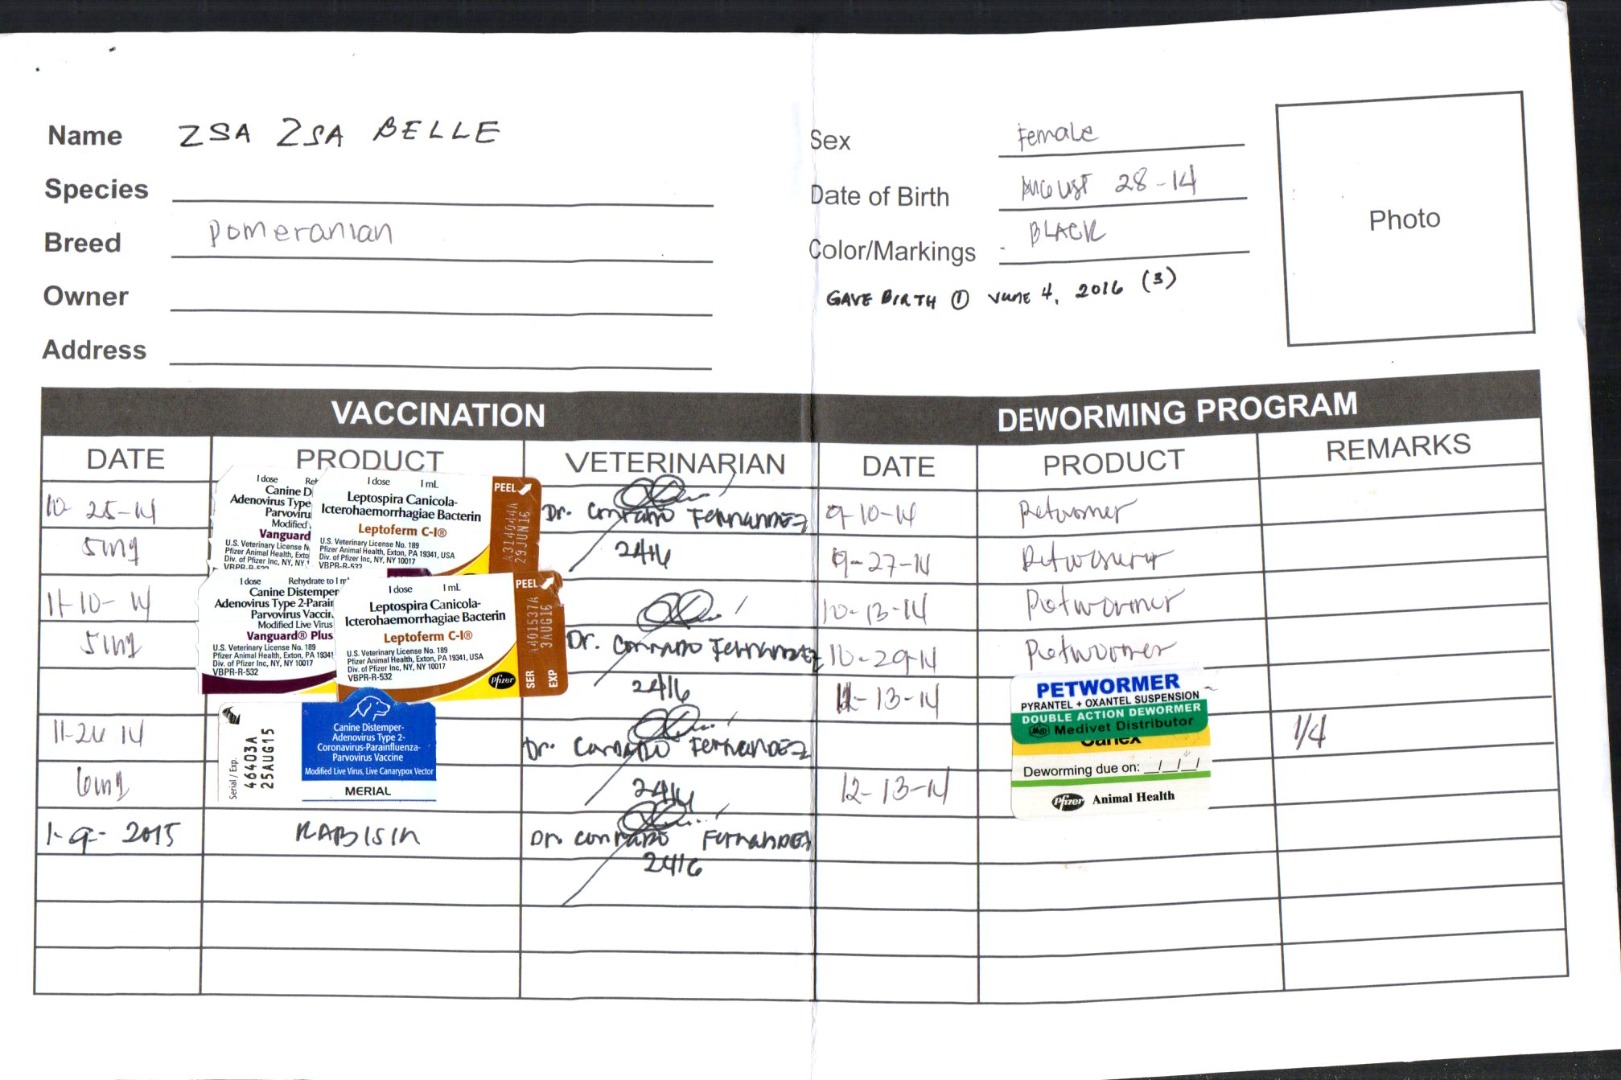 Name ZSA ZSA BELLE
Species
Breed Pomeranian
Owner
Address
Sex Female
Date of Birth August 28-14
Color/Markings BLACK
GAVE BIRTH ① JUNE 4, 2016 (3)
Photo
VACCINATION
DATE PRODUCT VETERINARIAN
10-25-14
5mg
1 dose Reh
Canine D
Adenovirus Type
Parvoviru
Modified
Vanguard
U.S. Veterinary License N
Pfizer Animal Health, Exto
Div. of Pfizer Inc, NY, NY
VBPR-R-532
1 dose 1 mL
Leptospira Canicola-
Icterohaemorrhagiae Bacterin
Leptoferm C-I®
U.S. Veterinary License No. 189
Pfizer Animal Health, Exton, PA 19341, USA
Div. of Pfizer Inc, NY, NY 10017
VBPR-R-532
PEEL
A314044A
29JUN16
Dr. Conrado Fernandez
2416
11-10-14
5mg
1 dose Rehydrate to 1 m
Canine Distemper
Adenovirus Type 2-Parain
Parvovirus Vaccin
Modified Live Virus
Vanguard® Plus
U.S. Veterinary License No. 189
Pfizer Animal Health, Exton, PA 19341
Div. of Pfizer Inc, NY, NY 10017
VBPR-R-532
1 dose 1 mL
Leptospira Canicola-
Icterohaemorrhagiae Bacterin
Leptoferm C-I®
U.S. Veterinary License No. 189
Pfizer Animal Health, Exton, PA 19341, USA
Div. of Pfizer Inc, NY, NY 10017
VBPR-R-532
Pfizer
PEEL
SER A401537A
EXP 3AUG16
Dr. Conrado Fernandez
2416
11-26 14
6mg
Serial / Exp.
46403A
25AUG15
Canine Distemper-
Adenovirus Type 2-
Coronavirus-Parainfluenza-
Parvovirus Vaccine
Modified Live Virus, Live Canarypox Vector
MERIAL
Dr. Conrado Fernandez
2416
1-9-2015 RABISIN Dr. Conrado Fernandez
2416
DEWORMING PROGRAM
DATE PRODUCT REMARKS
9-10-14 Petwormer
9-27-14 Petwormer
10-13-14 Petwormer
10-29-14 Petwormer
11-13-14
PETWORMER
PYRANTEL + OXANTEL SUSPENSION
DOUBLE ACTION DEWORMER
Medivet Distributor
1/4
12-13-14
Canex
Deworming due on: _/_/_/
Pfizer Animal Health